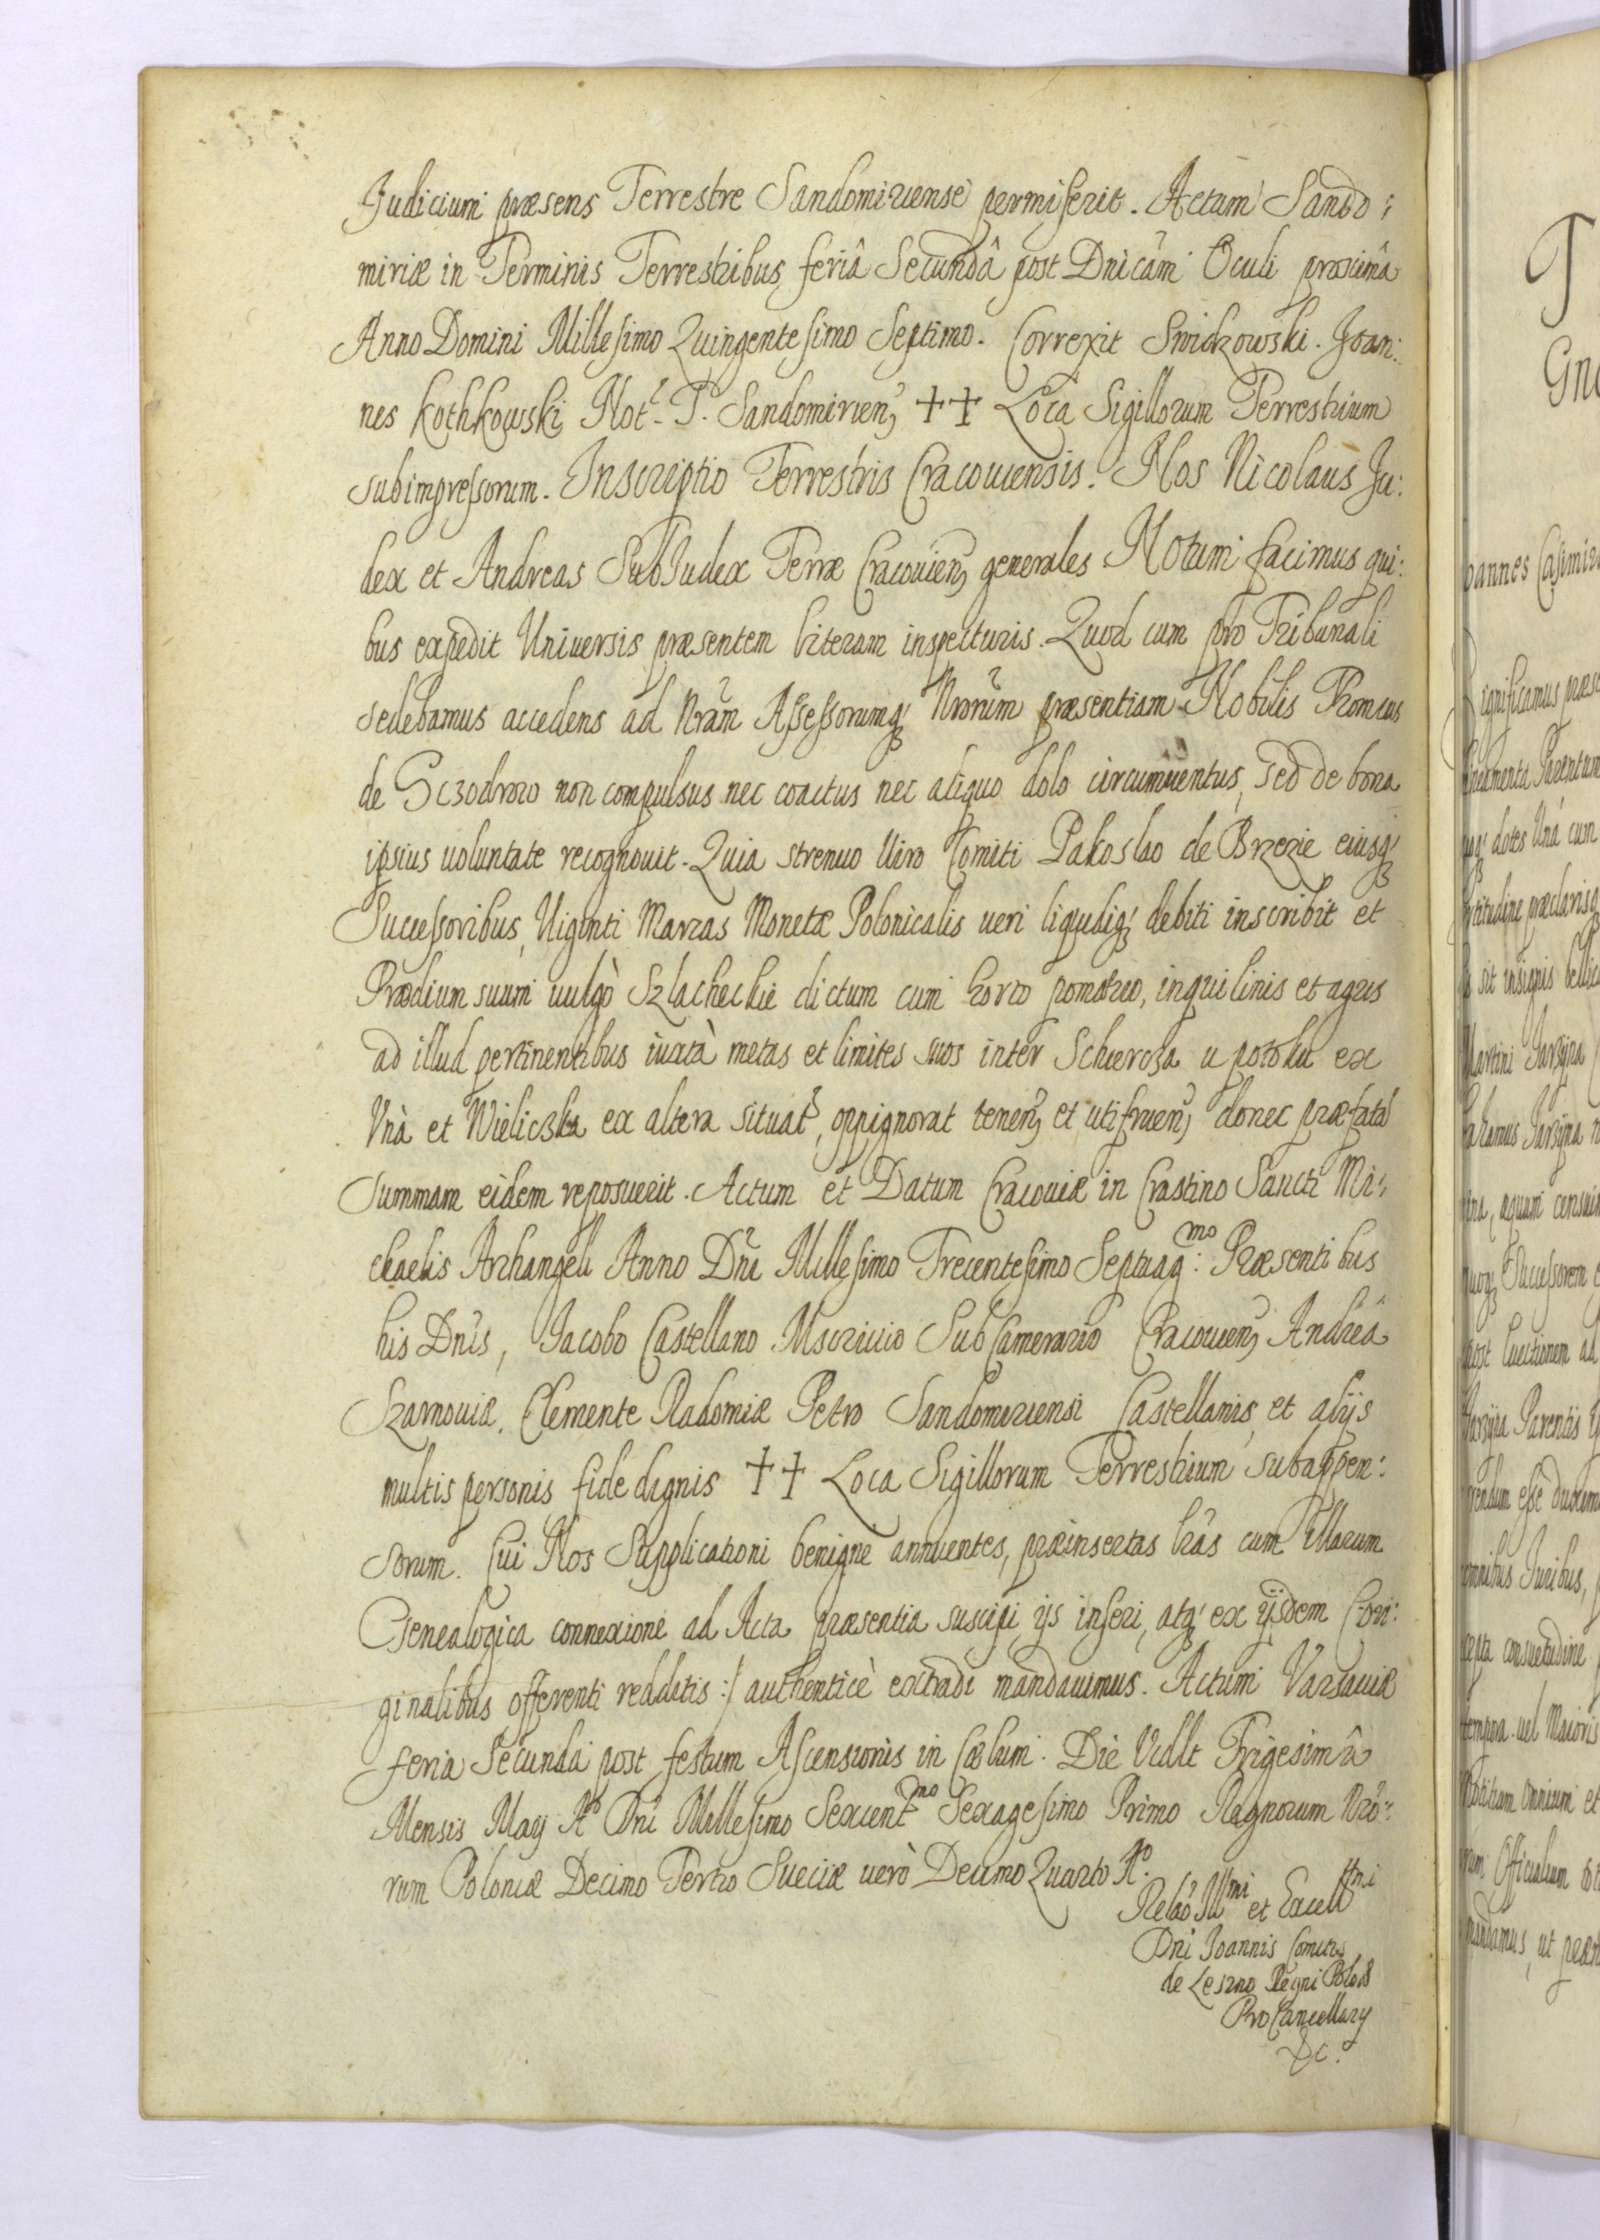 Judicium præsens Terrestre Sandomiriense permiserit. Actum Sando:
miriæ in Terminis Terrestribus, feriâ Secundâ post Dnicam Oculi proximâ
Anno Domini Millesimo Quingentesimo Septimo. Correxit Swidzowski. Joan:
nes Kothkowski Not. T. Sandomirien; ++ Loca Sigillorum Terrestrium
subimpressorum. Inscriptio Terrestris Cracouiensis. Nos Nicolaus Ju:
dex et Andreas SubJudex Terræ Cracouien; generales Notum facimus qui:
bus expedit Uniuersis præsentem literam inspecturis. Quod cum pro Tribunali
sedebamus accedens ad Nram Assessorumq; Nrorum præsentiam Nobilis Thomas
de Sczodrow non compulsus nec coactus nec aliquo dolo circumuentus, sed de bona
ipsius uoluntate recognouit. Quia strenuo Uiro Comiti Pakoslao de Brzezie eiusq;
Successoribus, Uiginti Marcas Monetæ Polonicalis ueri liquidiq; debiti inscribit et
Prædium suum uulgò Szlacheckie dictum cum horto pomario, inquilinis et agris
ad illud pertinentibus iuxtà metas et limites suos inter Schiercza u potoku ex
Unà et Wieliczka ex altera situat, oppignorat tenen; et utifruen; donec præfatã
Summam eidem reposuerit. Actum et Datum Cracouiæ in Crastino Sancti Mi:
chaelis Arhangeli Anno Dni Millesimo Trecentesimo Septuag:mo Præsentibus
his Dnis, Jacobo Castellano Mscziuio SubCamerario Cracouien; Andreâ
Szarnouiæ, Clemente Radomiæ Petro Sandomiriensi Castellanis, et alijs
multis personis fide dignis ++ Loca Sigillorum Terrestrium subappen:
sorum. Cui Nos Supplicationi benigne annuentes, præinsertas lrãs cum Illarum
Genealogica connexione ad Acta præsentia suscipi, ijs inseri, atq; ex ijsdem (Ori:
ginalibus offerenti redditis :/ authenticè extradi mandauimus. Actum Varsauiæ
feria Secunda post festum Ascensionis in Cœlum. Die Vidlt Trigesimâ
Mensis Maij Ao Dni Millesimo Sexcentmo Sexagesimo Primo Regnorum Nro:
rum Poloniæ Decimo Tertio Sueciæ uerò Decimo Quarto Ao.
Relaõ Illmi et Excellmi
Dni Joannis Comitis
de Leszno Regni Polo
ProCancellarij
&c.